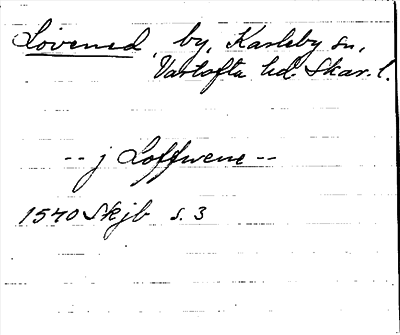 Lovened, by, Karleby sn,
Vartofta hd. Skar. l.
-- j Loffwene --
1540 Skjb s. 3